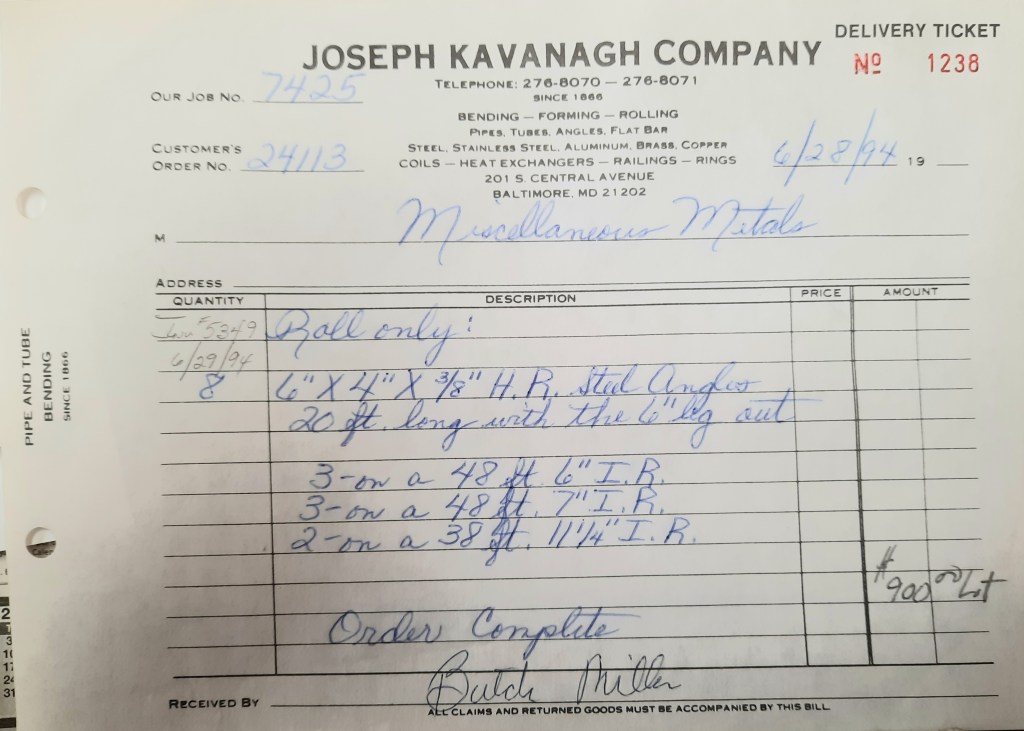 DELIVERY TICKET
JOSEPH KAVANAGH COMPANY
Nº 1238
TELEPHONE: 276-8070 — 276-8071
SINCE 1866
OUR JOB NO. 7425
BENDING — FORMING — ROLLING
PIPES, TUBES, ANGLES, FLAT BAR
STEEL, STAINLESS STEEL, ALUMINUM, BRASS, COPPER
CUSTOMER'S
ORDER NO. 24113
COILS — HEAT EXCHANGERS — RAILINGS — RINGS
6/28/94 19
201 S. CENTRAL AVENUE
BALTIMORE, MD 21202
M Miscellaneous Metals
ADDRESS
QUANTITY DESCRIPTION PRICE AMOUNT
Inv # 5349 Roll only:
6/29/94
8 6" X 4" X 3/8" H.R. Steel Angles
20 ft. long with the 6" leg out
3-on a 48 ft. 6" I.R.
3-on a 48 ft. 7" I.R.
2-on a 38 ft. 11 1/4" I.R.
$900.00 Lot
Order Complete
RECEIVED BY Butch Miller
ALL CLAIMS AND RETURNED GOODS MUST BE ACCOMPANIED BY THIS BILL
PIPE AND TUBE
BENDING
SINCE 1866
2
3
10
17
24
31